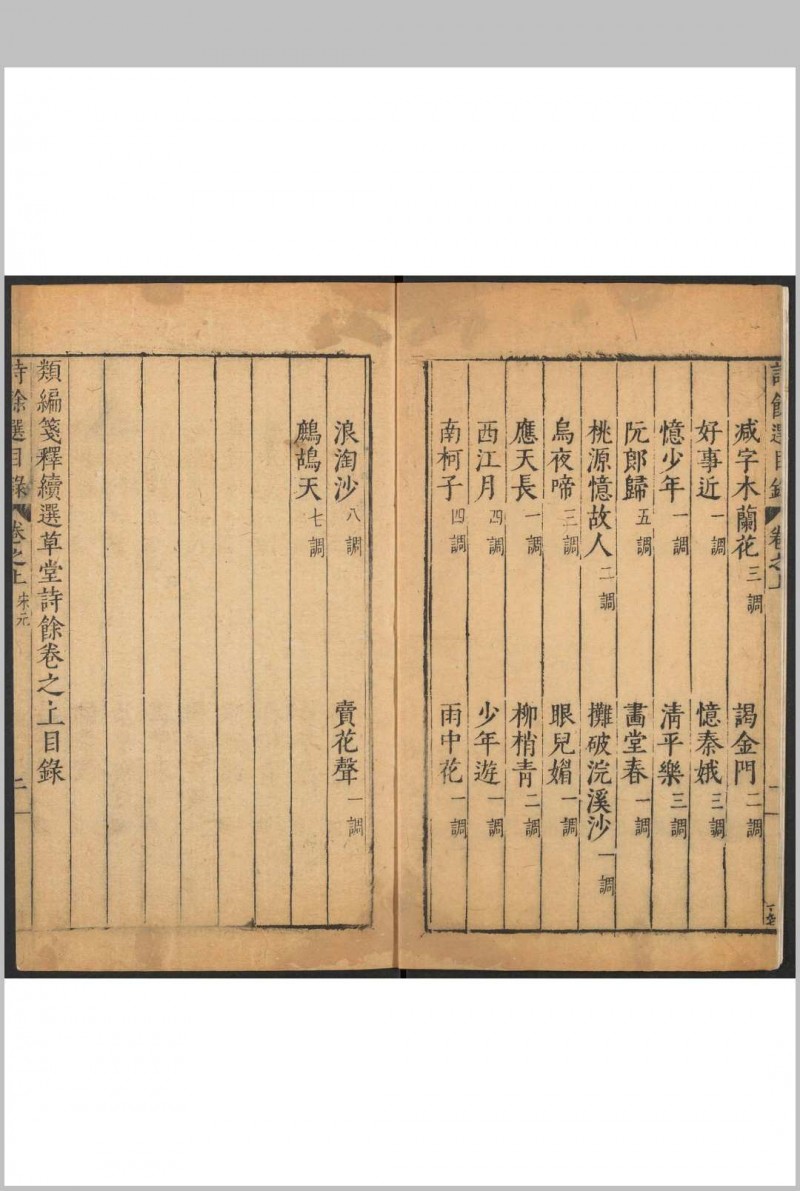 詩餘選目錄 卷之上 一
減字木蘭花 三調 謁金門 二調
好事近 一調 憶秦娥 三調
憶少年 一調 清平樂 三調
阮郎歸 五調 畵堂春 一調
桃源憶故人 二調 攤破浣溪沙 一調
烏夜啼 三調 眼兒媚 一調
應天長 一調 柳梢青 二調
西江月 四調 少年遊 一調
南柯子 四調 雨中花 一調
浪淘沙 八調 賣花聲 一調
鷓鴣天 七調
類編箋釋續選草堂詩餘卷之上目錄
詩餘選目錄 卷之上 宋元 二